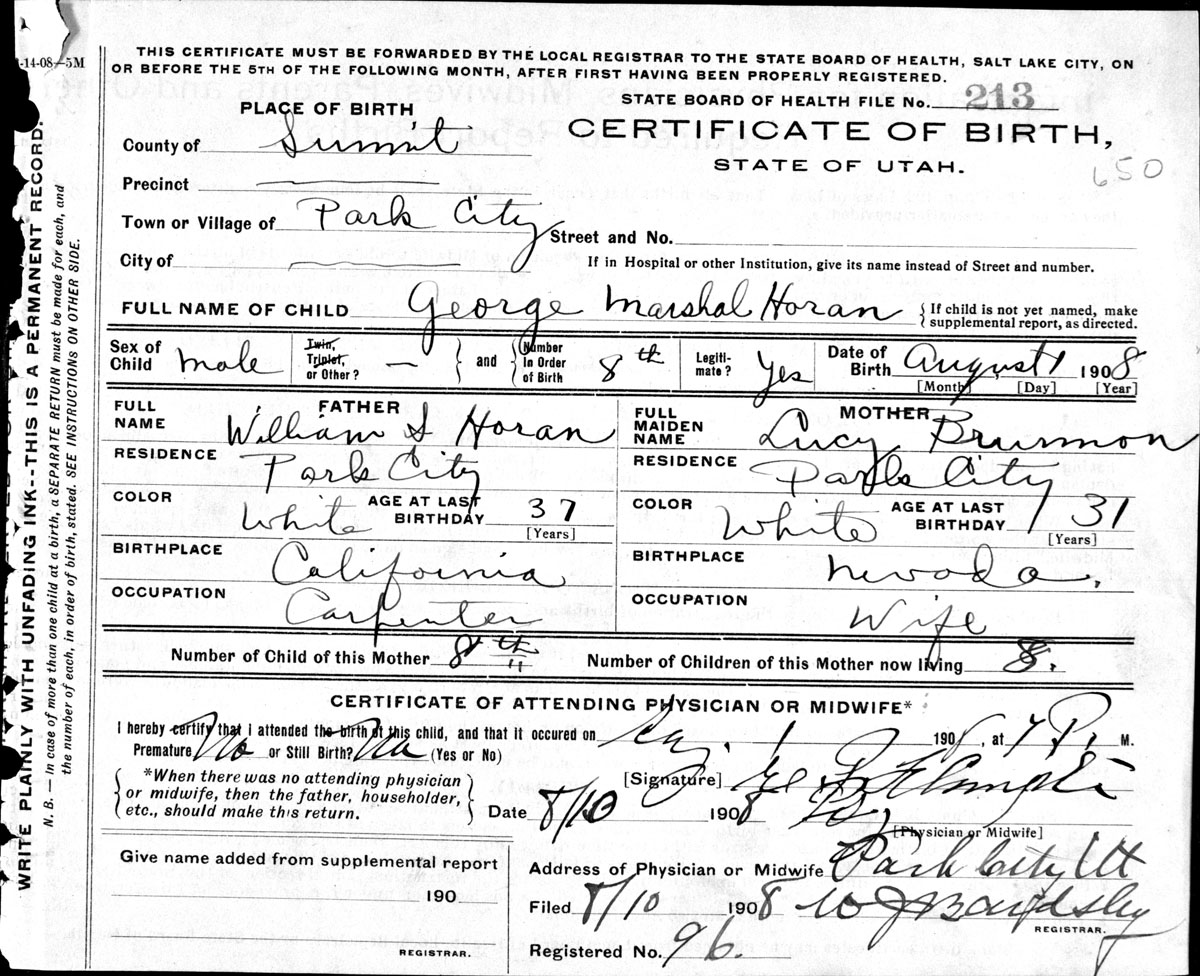 -14-08—5M
THIS CERTIFICATE MUST BE FORWARDED BY THE LOCAL REGISTRAR TO THE STATE BOARD OF HEALTH, SALT LAKE CITY, ON
OR BEFORE THE 5TH OF THE FOLLOWING MONTH, AFTER FIRST HAVING BEEN PROPERLY REGISTERED.
STATE BOARD OF HEALTH FILE No. 213
PLACE OF BIRTH
CERTIFICATE OF BIRTH,
STATE OF UTAH.
650
County of Summit
Precinct
Town or Village of Park City
Street and No.
City of
If in Hospital or other Institution, give its name instead of Street and number.
FULL NAME OF CHILD George Marshal Horan
If child is not yet named, make
supplemental report, as directed.
Sex of
Child male
Twin,
Triplet,
or Other? —
and
Number
in Order
of Birth 8th
Legiti-
mate? Yes
Date of
Birth August 1 1908
[Month] [Day] [Year]
FATHER
FULL
NAME William S Horan
RESIDENCE Park City
COLOR White
AGE AT LAST
BIRTHDAY 37
[Years]
BIRTHPLACE California
OCCUPATION Carpenter
MOTHER
FULL
MAIDEN
NAME Lucy
RESIDENCE Park City
COLOR White
AGE AT LAST
BIRTHDAY 31
[Years]
BIRTHPLACE Nevada.
OCCUPATION Wife
Number of Child of this Mother 8th
Number of Children of this Mother now living 8.
CERTIFICATE OF ATTENDING PHYSICIAN OR MIDWIFE*
I hereby certify that I attended the birth of this child, and that it occured on Aug. 1 1908, at 7 P. M.
Premature No or Still Birth? No (Yes or No)
*When there was no attending physician
or midwife, then the father, householder,
etc., should make this return.
[Signature]
Date 8/10 1908
[Physician or Midwife]
Address of Physician or Midwife Park City Ut
Filed 8/10 1908 W J Bardsley
REGISTRAR.
Registered No. 96.
Give name added from supplemental report
190
REGISTRAR.
WRITE PLAINLY WITH UNFADING INK--THIS IS A PERMANENT RECORD.
N. B. — In case of more than one child at a birth, a SEPARATE RETURN must be made for each, and
the number of each, in order of birth, stated. SEE INSTRUCTIONS ON OTHER SIDE.